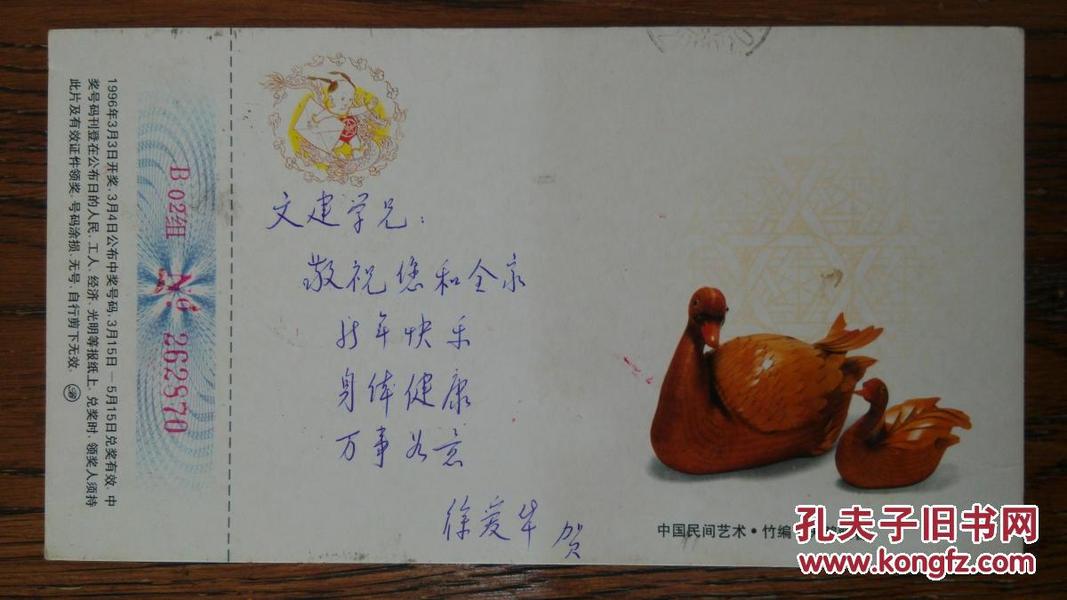 1996年3月3日开奖，3月4日公布中奖号码，3月15日—5月15日兑奖有效。中
奖号码刊登在公布日的人民、工人、经济、光明等报纸上。兑奖时，领奖人须持
此片及有效证件领奖。号码涂损、无号、自行剪下无效。
B·02组 No 262870
文建学兄：
敬祝您和全家
新年快乐
身体健康
万事如意
徐爱华 贺
中国民间艺术·竹编
孔夫子旧书网
www.kongfz.com